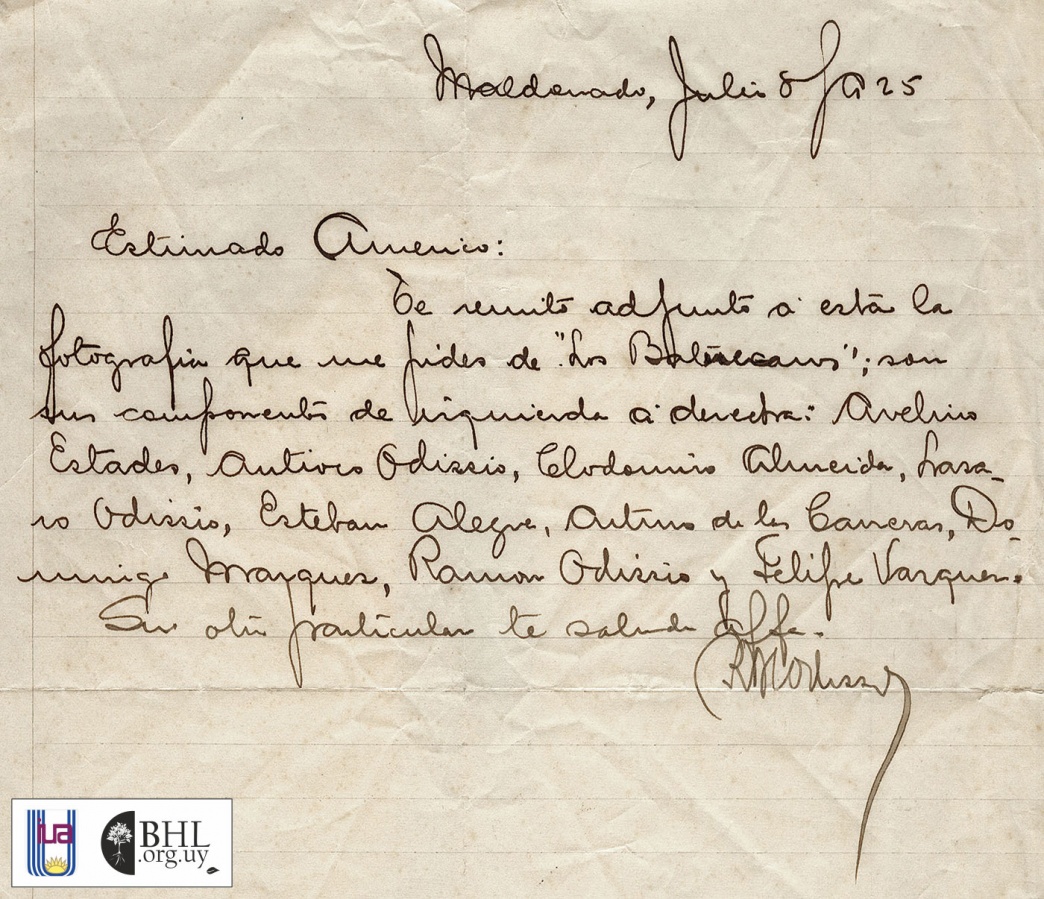 Maldonado, Julio 8/925
Estimado Americo:
Te remito adjunto a esta la
fotografia que me pides de "Los
son
sus componentes de izquierda a derecha: Avelino
Estades, Antivio Odizzio, Clodomiro Almeida, Lasa-
ro Odizzio, Esteban Alegre, Arturo de las Carreras, Do-
mingo Marquez, Ramon Odizzio y Felipe Vazquez.
Sin otro particular te saluda affe.
R M Odizzio
iua
BHL
.org.uy